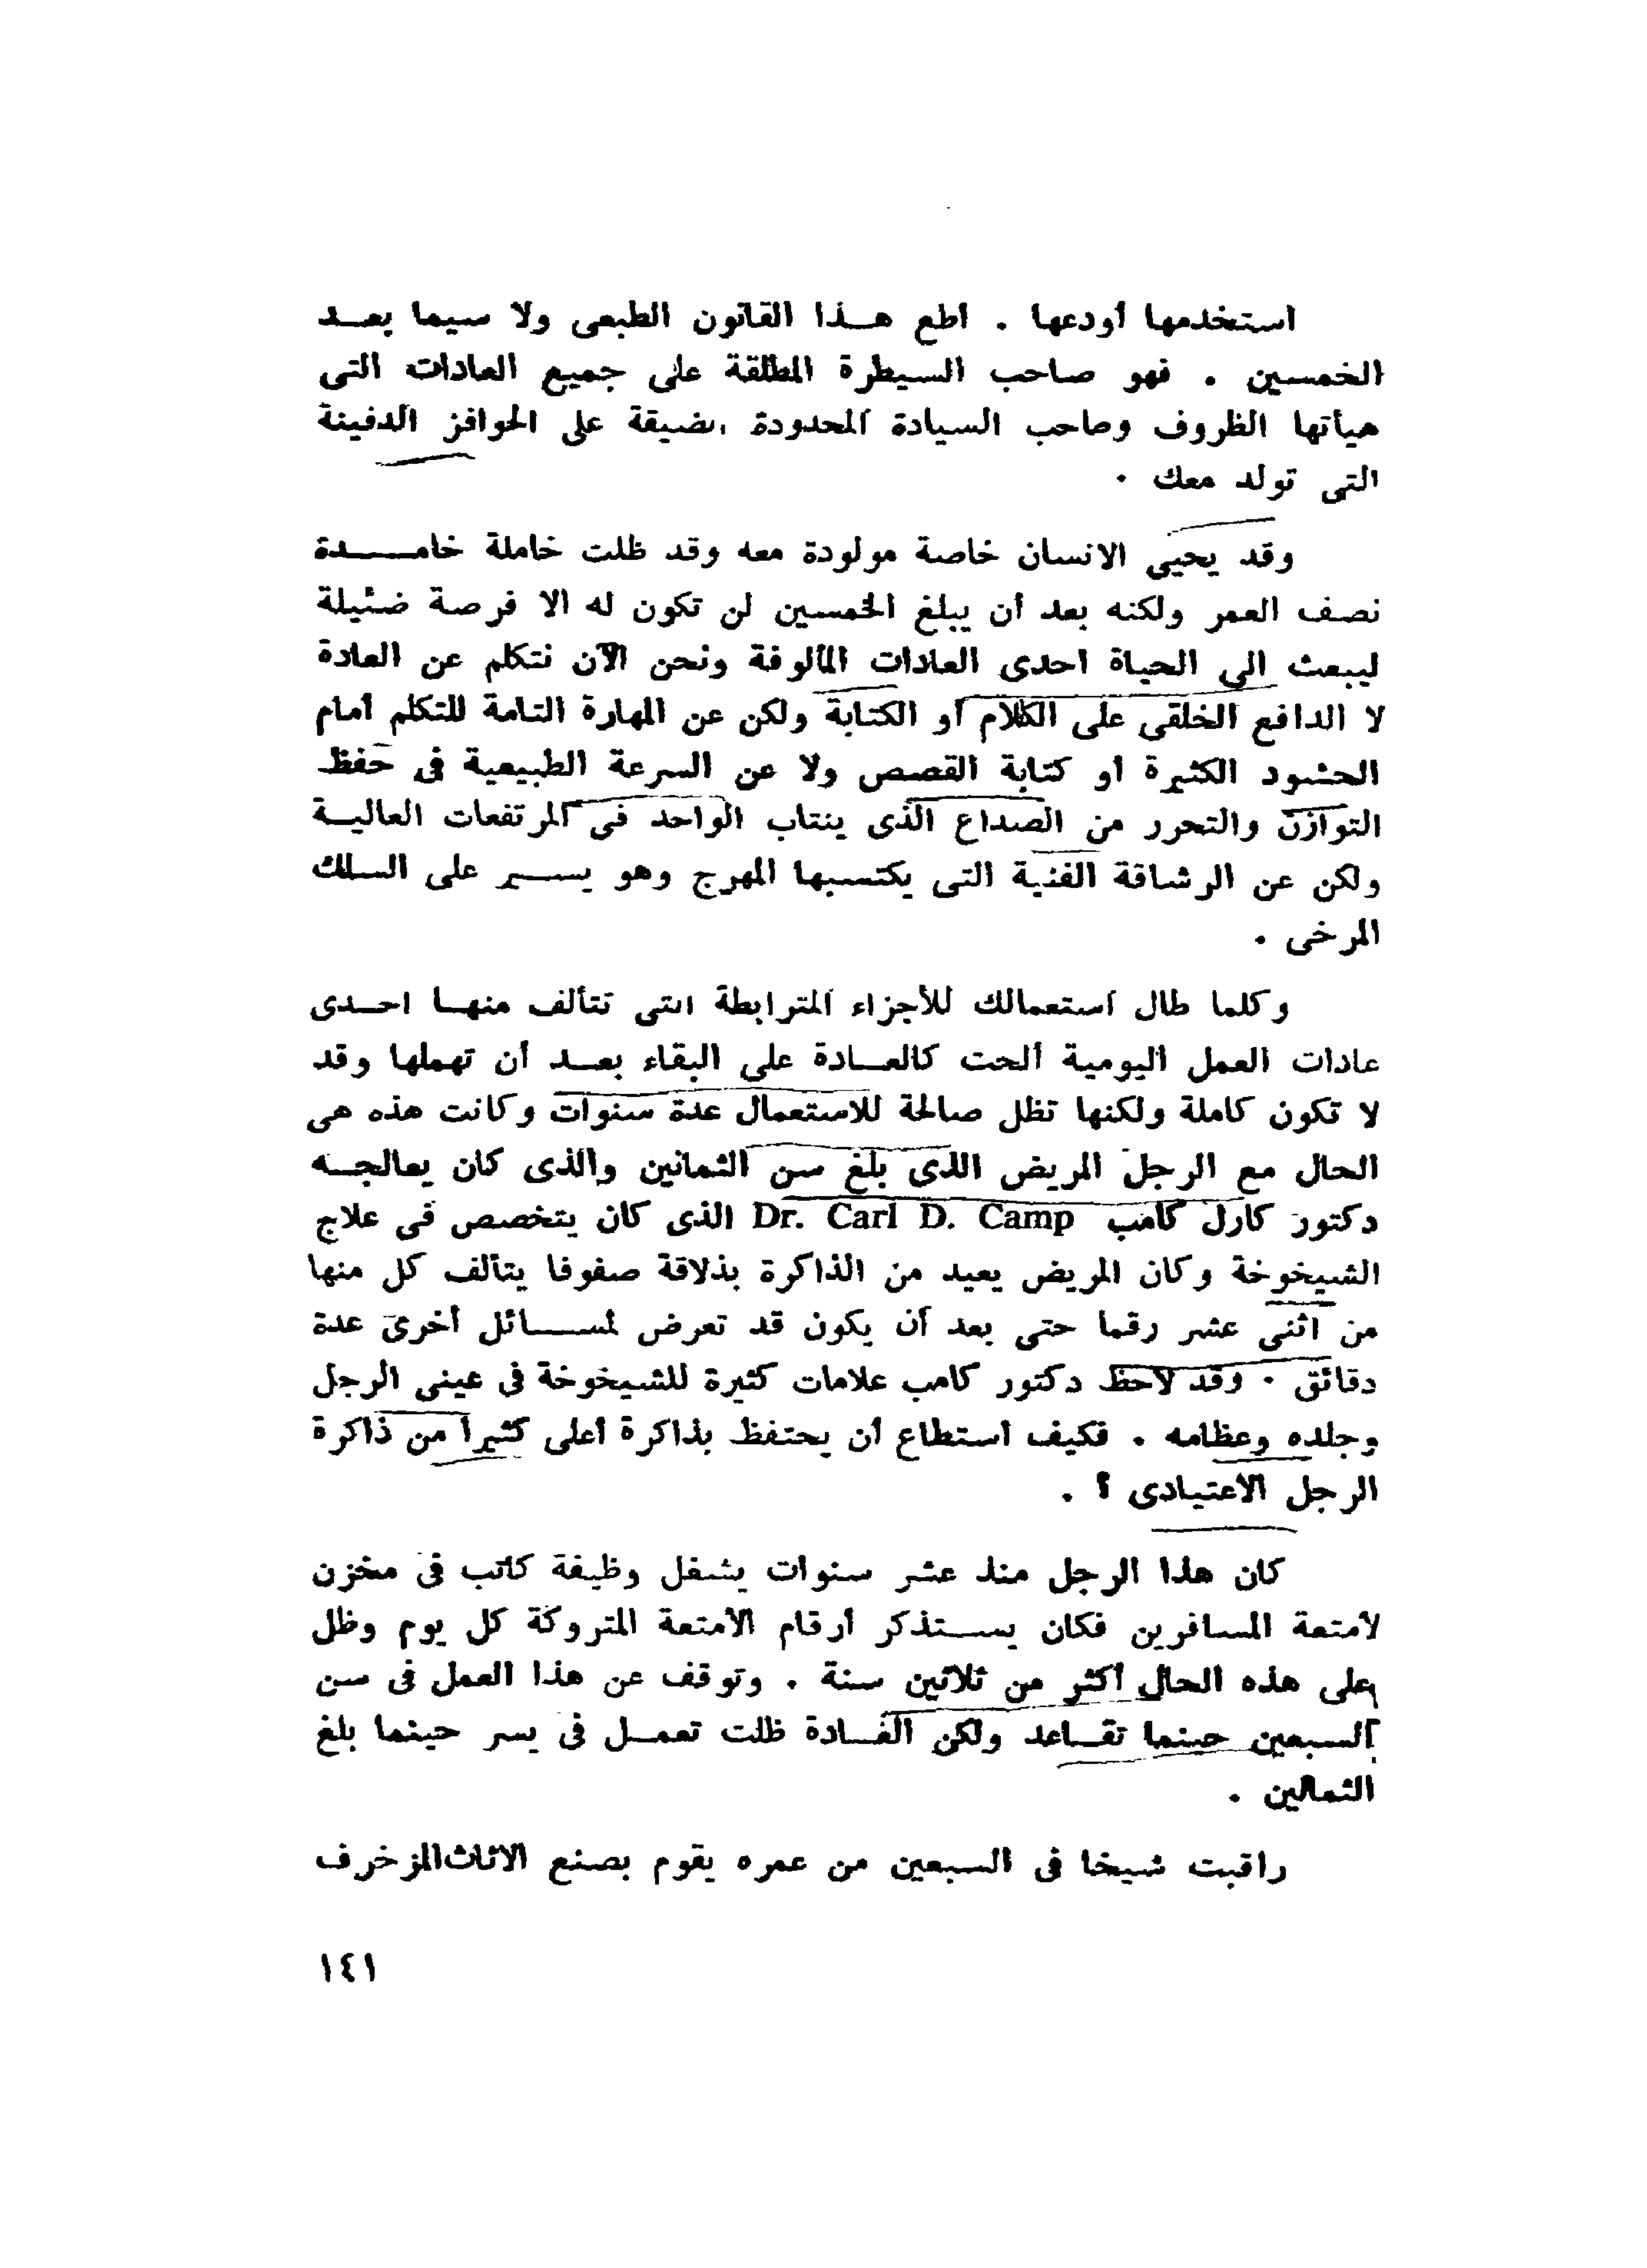 استخدمها أودعها . اطع هـذا القانون الطبعى ولا سيما بعـد
الخمسين . فهو صاحب السيطرة المطلقة على جميع العادات التى
هيأتها الظروف وصاحب السيادة المحدودة الضيقة على الحوافز الدفينة
التى تولد معك .
وقد يحيى الانسان خاصة مولودة معه وقد ظلت خاملة خامـدة
نصف العمر ولكنه بعد أن يبلغ الخمسين لن تكون له الا فرصة ضئيلة
ليبعث الى الحياة احدى العادات المألوفة ونحن الآن نتكلم عن العادة
لا الدافع الخلقى على الكلام أو الكتابة ولكن عن المهارة التامة للتكلم أمام
الحشود الكثيرة أو كتابة القصص ولا عن السرعة الطبيعية فى حفظ
التوازن والتحرر من الصداع الذى ينتاب الواحد فى المرتفعات العاليـة
ولكن عن الرشاقة الفنية التى يكتسبها المهرج وهو يسـير على السلك
المرخى .
وكلما طال استعمالك للأجزاء المترابطة التى تتألف منهـا احـدى
عادات العمل اليومية ألحت كالعـادة على البقاء بعـد أن تهملها وقد
لا تكون كاملة ولكنها تظل صالحة للاستعمال عدة سنوات وكانت هذه هى
الحال مع الرجل المريض الذى بلغ سن الثمانين والذى كان يعالجـه
دكتور كارل كامب Dr. Carl D. Camp الذى كان يتخصص فى علاج
الشيخوخة وكان المريض يعيد من الذاكرة بذلاقة صفوفا يتألف كل منها
من اثنى عشر رقما حتى بعد أن يكون قد تعرض لمسـائل أخرى عدة
دقائق . وقد لاحظ دكتور كامب علامات كثيرة للشيخوخة فى عينى الرجل
وجلده وعظامه . فكيف استطاع أن يحتفظ بذاكرة أعلى كثيرا من ذاكرة
الرجل الاعتيادى ؟ .
كان هذا الرجل منذ عشر سنوات يشغل وظيفة كاتب فى مخزن
لأمتعة المسافرين فكان يسـتذكر أرقام الأمتعة المتروكة كل يوم وظل
على هذه الحال أكثر من ثلاثين سنة . وتوقف عن هذا العمل فى سن
السبعين حينما تقـاعد ولكن العـادة ظلت تعمـل فى يسر حينما بلغ
الثمانين .
راقبت شيخا فى السبعين من عمره يقوم بصنع الاثاث المزخرف
١٤١